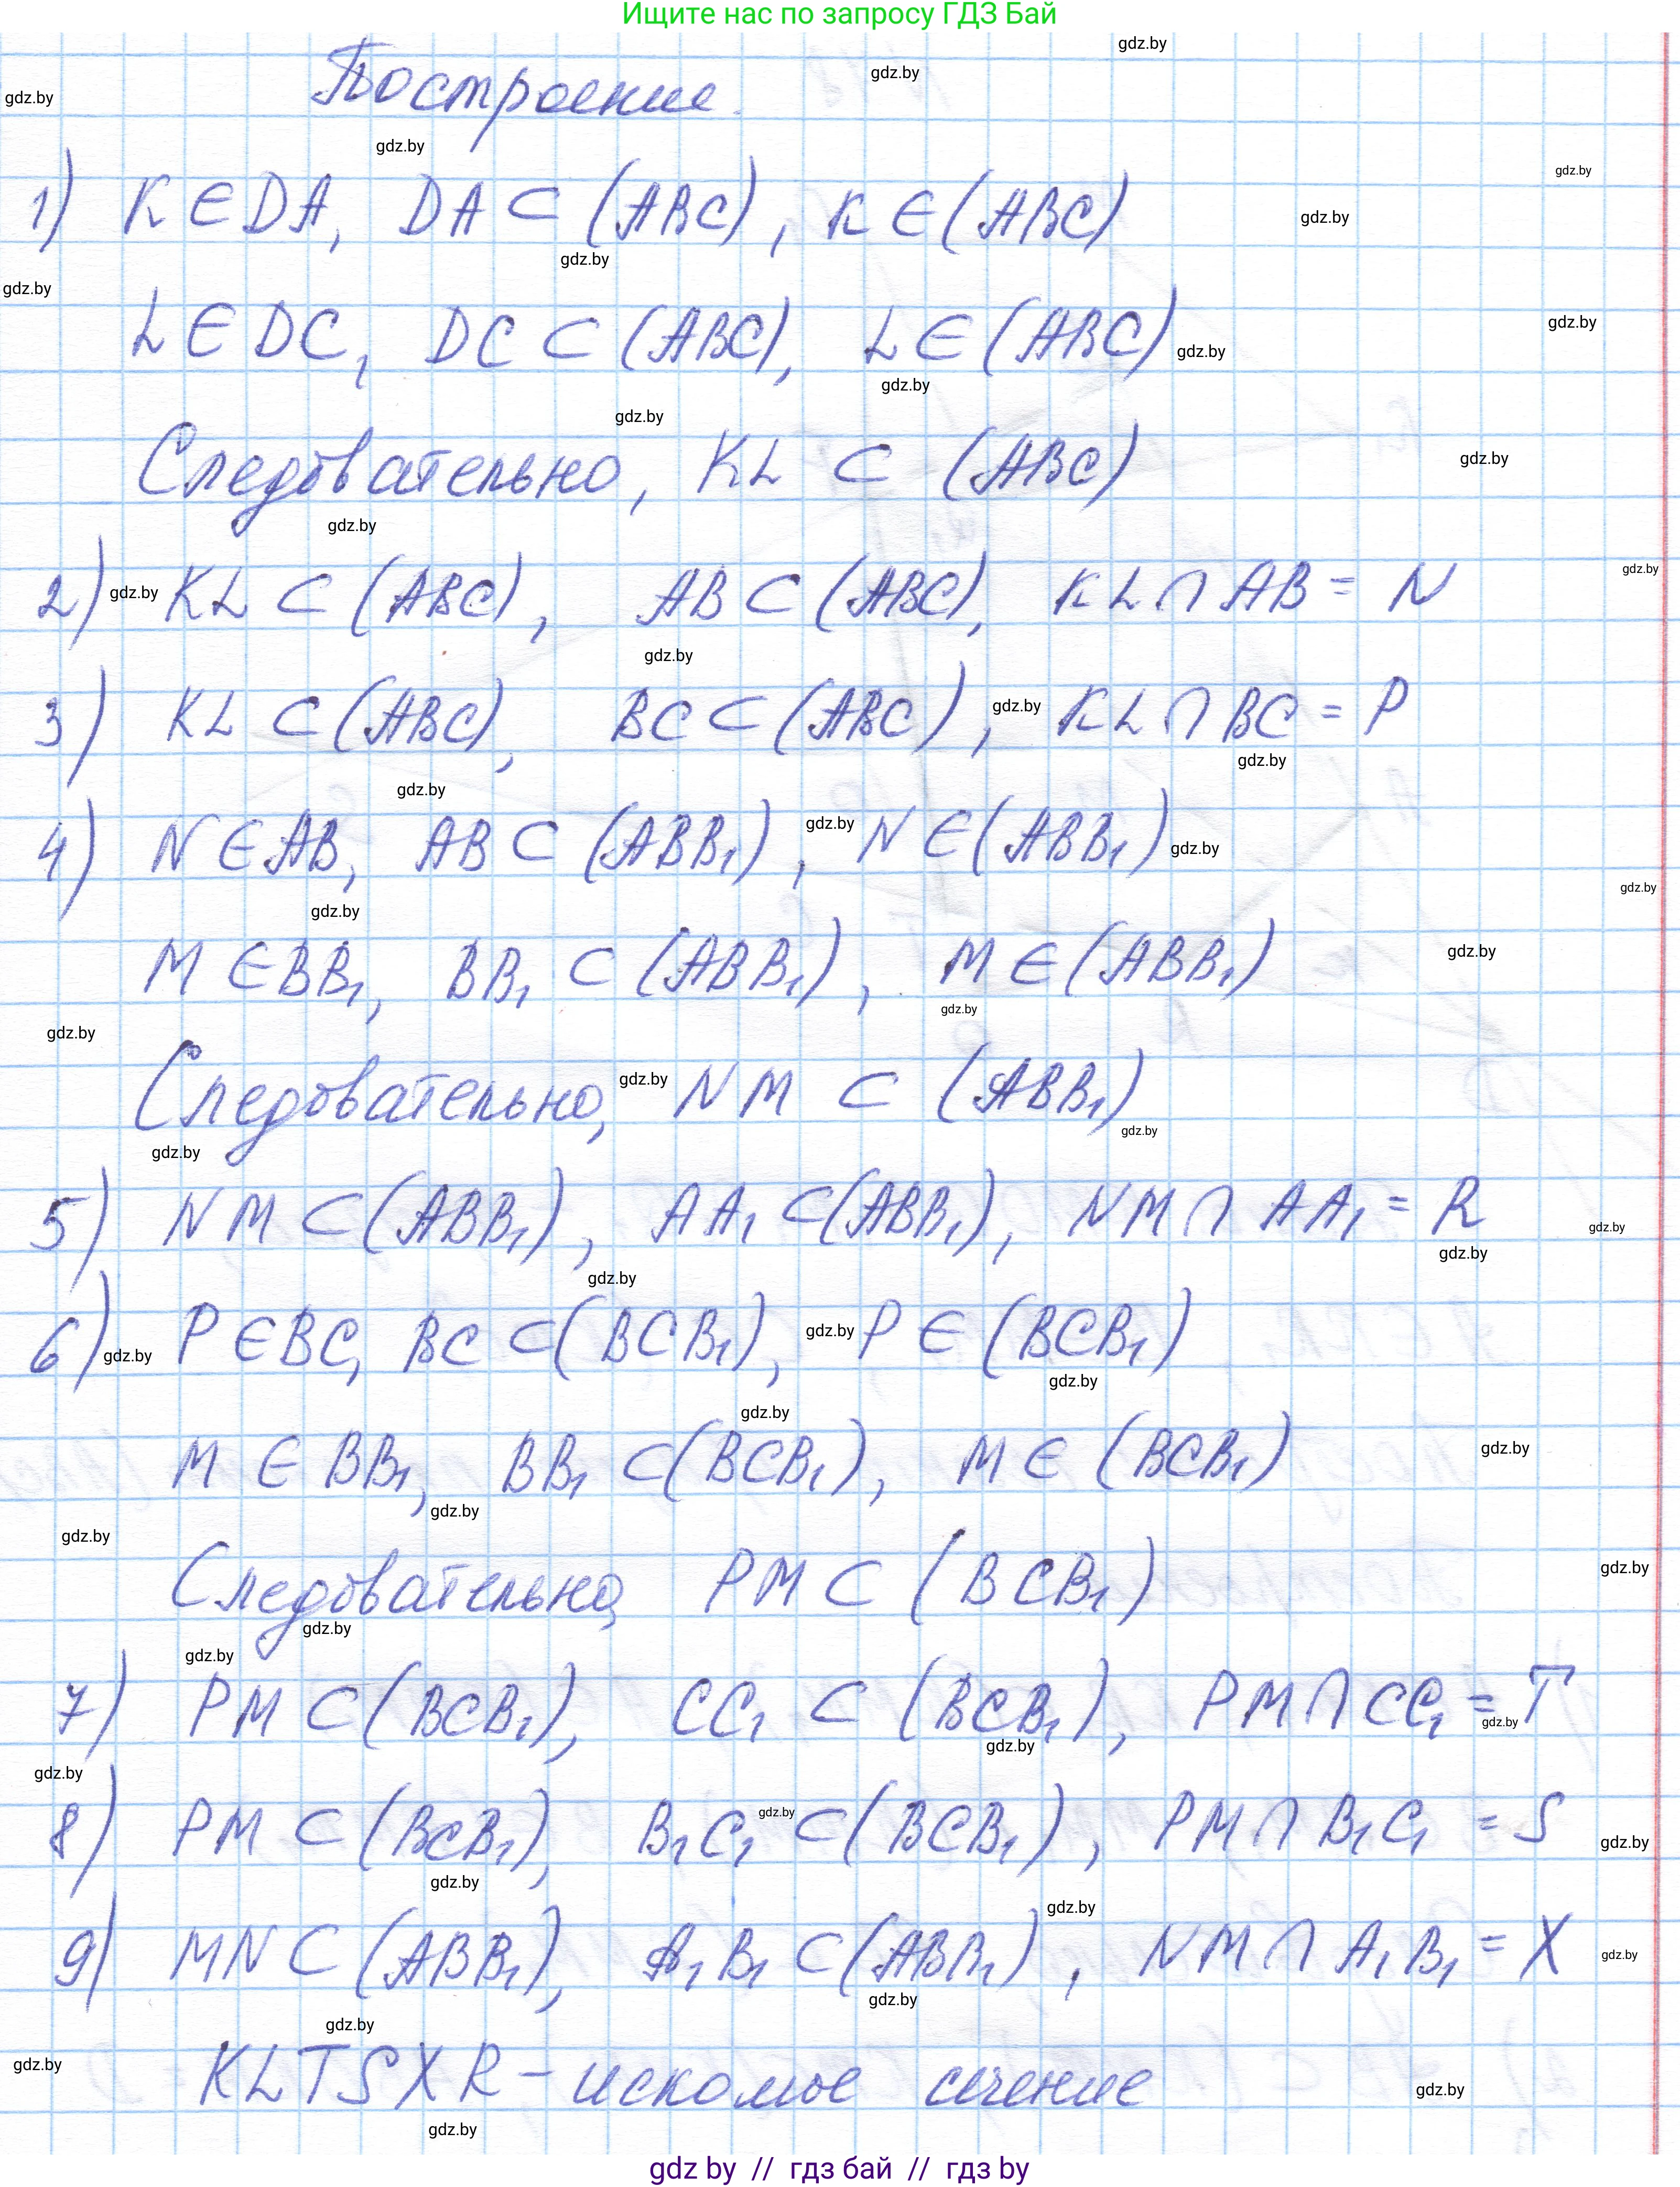 Ищите нас по запросу ГДЗ Бай
Построение.
1) K ∈ DA, DA ⊂ (ABC), K ∈ (ABC)
L ∈ DC, DC ⊂ (ABC), L ∈ (ABC)
Следовательно, KL ⊂ (ABC)
2) KL ⊂ (ABC), AB ⊂ (ABC), KL ∩ AB = N
3) KL ⊂ (ABC), BC ⊂ (ABC), KL ∩ BC = P
4) N ∈ AB, AB ⊂ (ABB₁), N ∈ (ABB₁)
M ∈ BB₁, BB₁ ⊂ (ABB₁), M ∈ (ABB₁)
Следовательно, NM ⊂ (ABB₁)
5) NM ⊂ (ABB₁), AA₁ ⊂ (ABB₁), NM ∩ AA₁ = R
6) P ∈ BC, BC ⊂ (BCB₁), P ∈ (BCB₁)
M ∈ BB₁, BB₁ ⊂ (BCB₁), M ∈ (BCB₁)
Следовательно, PM ⊂ (BCB₁)
7) PM ⊂ (BCB₁), CC₁ ⊂ (BCB₁), PM ∩ CC₁ = T
8) PM ⊂ (BCB₁), B₁C₁ ⊂ (BCB₁), PM ∩ B₁C₁ = S
9) MN ⊂ (ABB₁), A₁B₁ ⊂ (ABB₁), NM ∩ A₁B₁ = X
KLTSXR - искомое сечение
gdz by // гдз бай // гдз by